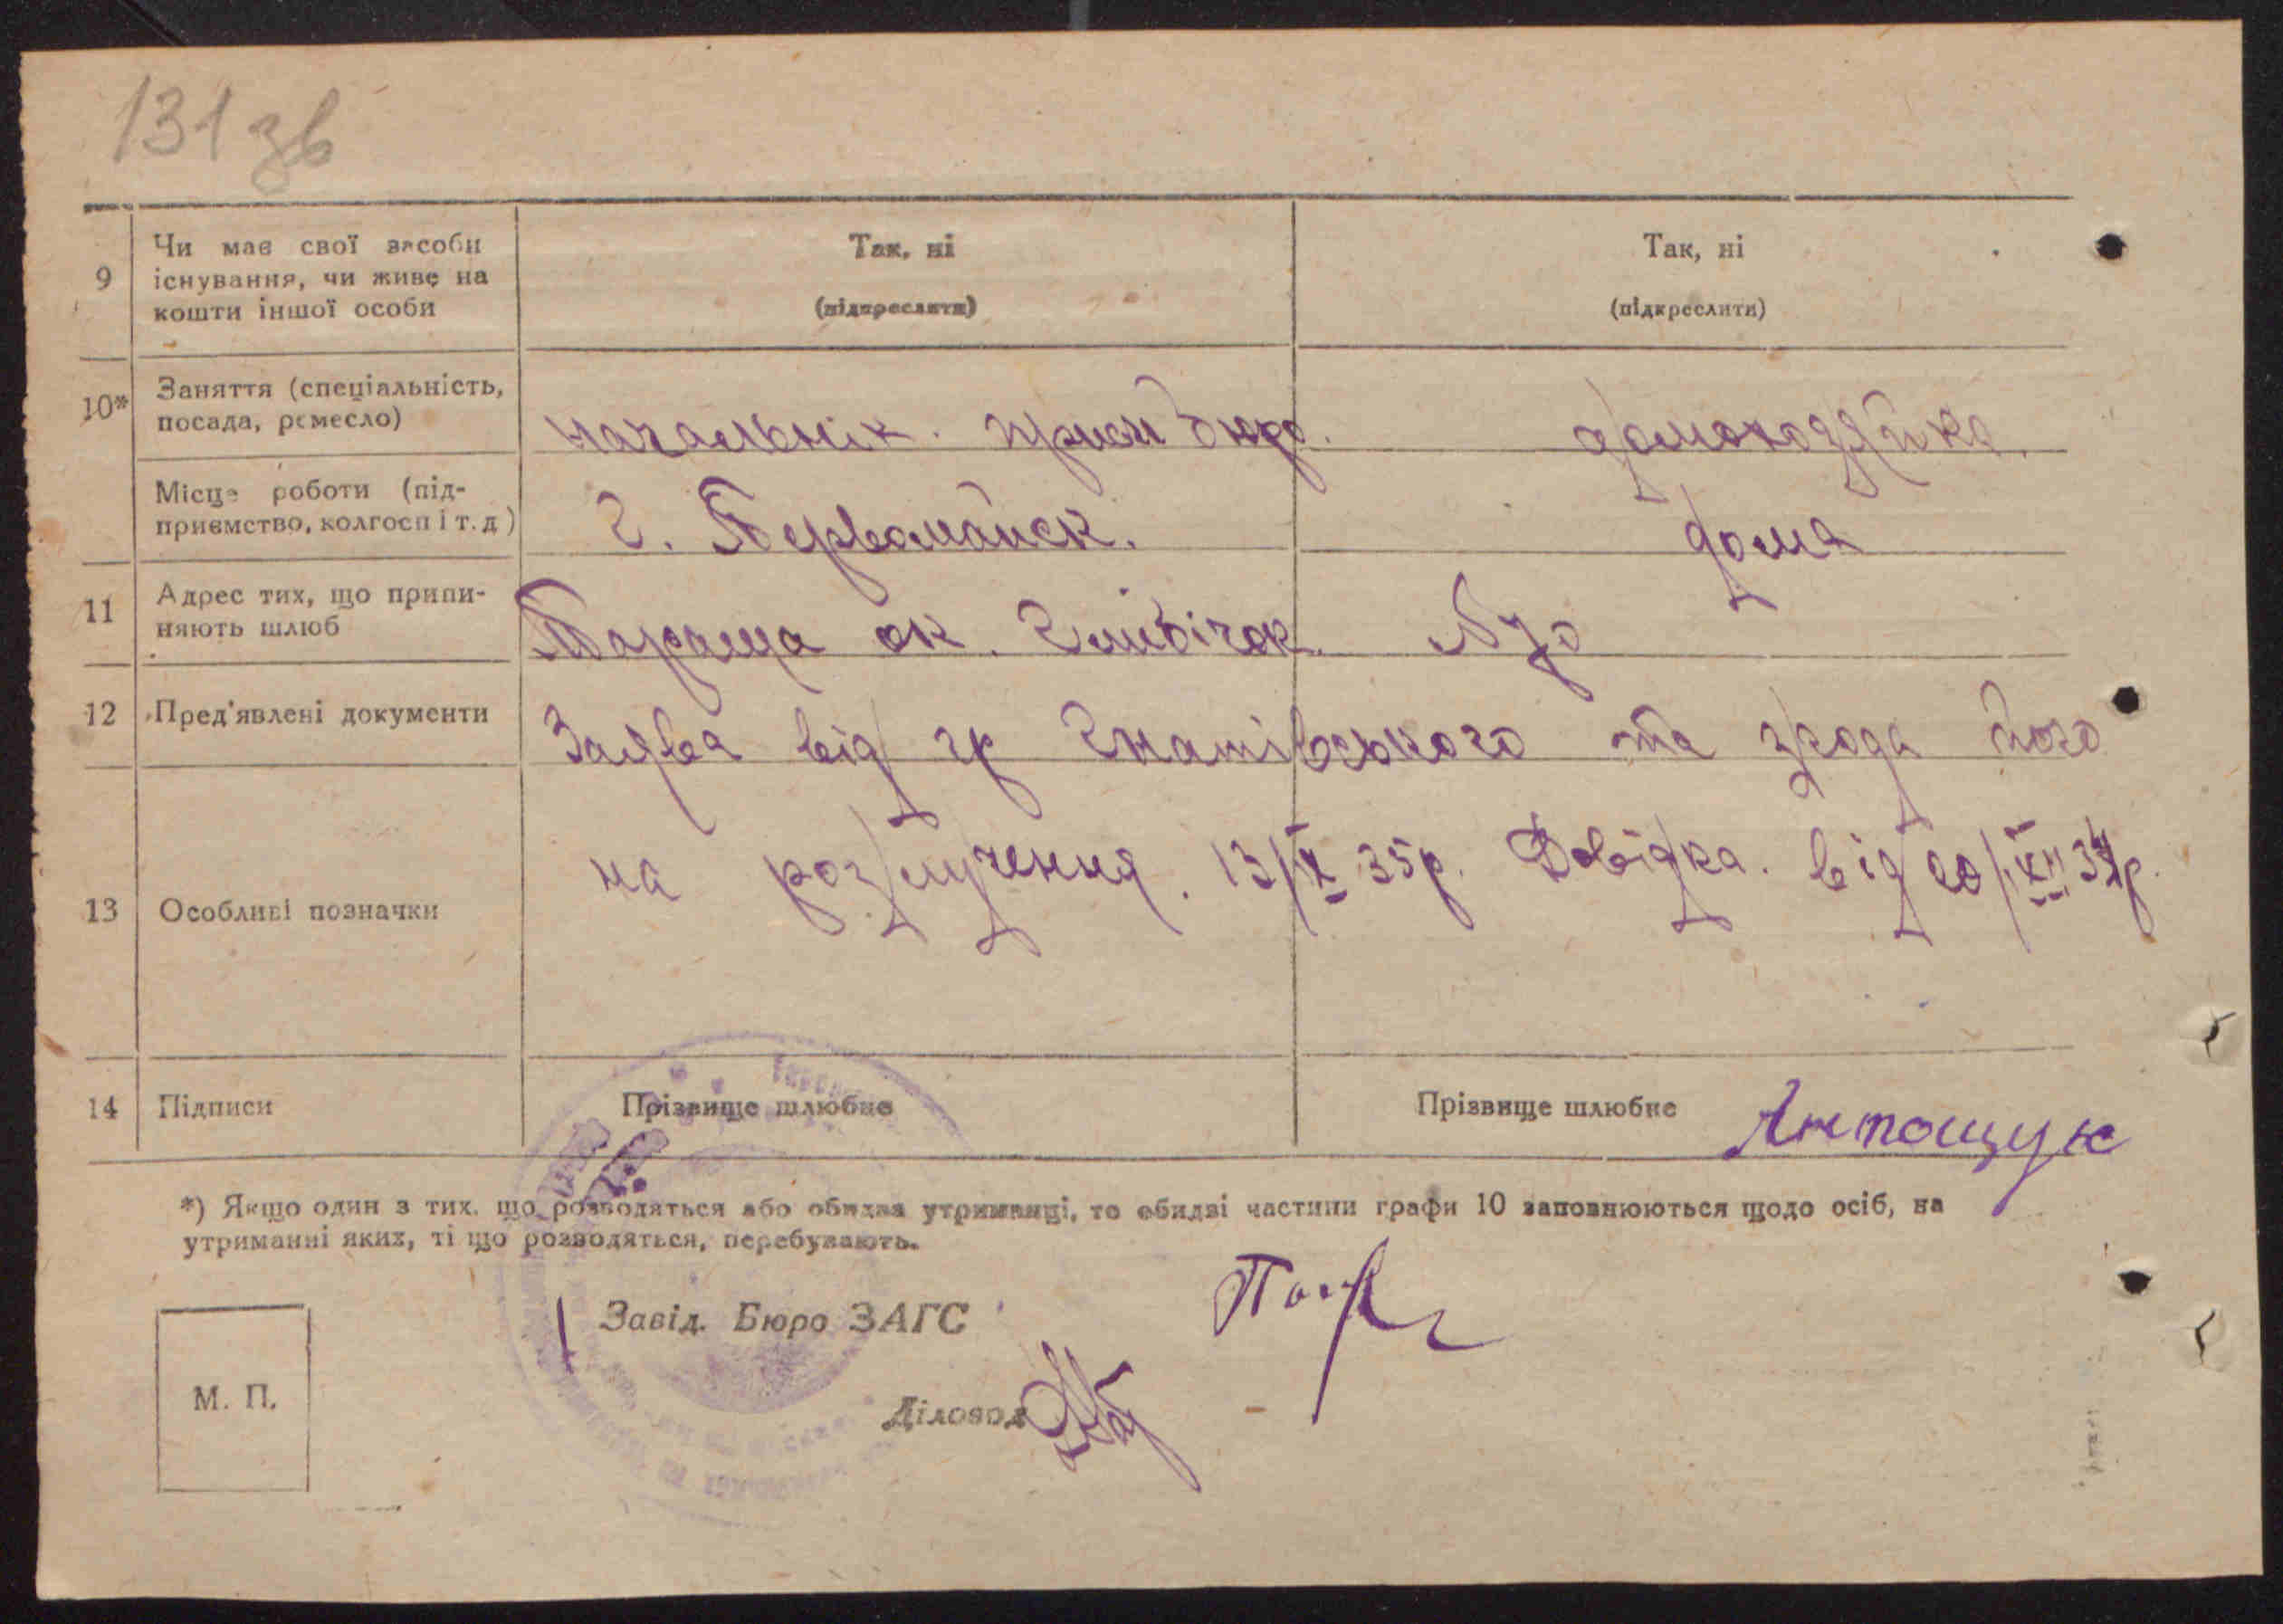 131 зв
9
Чи має свої засоби
існування, чи живе на
кошти іншої особи
Так, ні
(підкреслити)
Так, ні
(підкреслити)
10*
Заняття (спеціальність,
посада, ремесло)
начальнік. прием бюро.
домохозяйка.
Місце роботи (під-
приємство, колгосп і т. д)
г. Первомайск.
дома
11
Адрес тих, що припи-
няють шлюб
Тараща ок.
12
Пред'явлені документи
Заява від гр Гнатівського та згода його
на розлучення. 13/ІХ 35р. Довідка. від 20/ХІІ 34р.
13
Особливі позначки
14
Підписи
Прізвище шлюбне
Прізвище шлюбне
Антощук
*) Якщо один з тих, що розводяться або обидва утриманці, то обидві частини графи 10 заповнюються щодо осіб, на
утриманні яких, ті що розводяться, перебувають.
Завід. Бюро ЗАГС
Діловод
М. П.